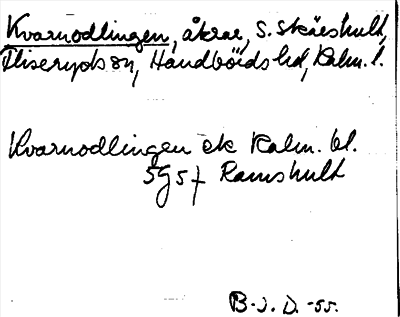 Kvarnodlingen, åkrar, S. Skäeshult,
Fliseryds sn, Handbörds hd, Kalm. l.
Kvarnodlingen ek Kalm. bl.
5g5f Ramshult
B-J. D. -55.